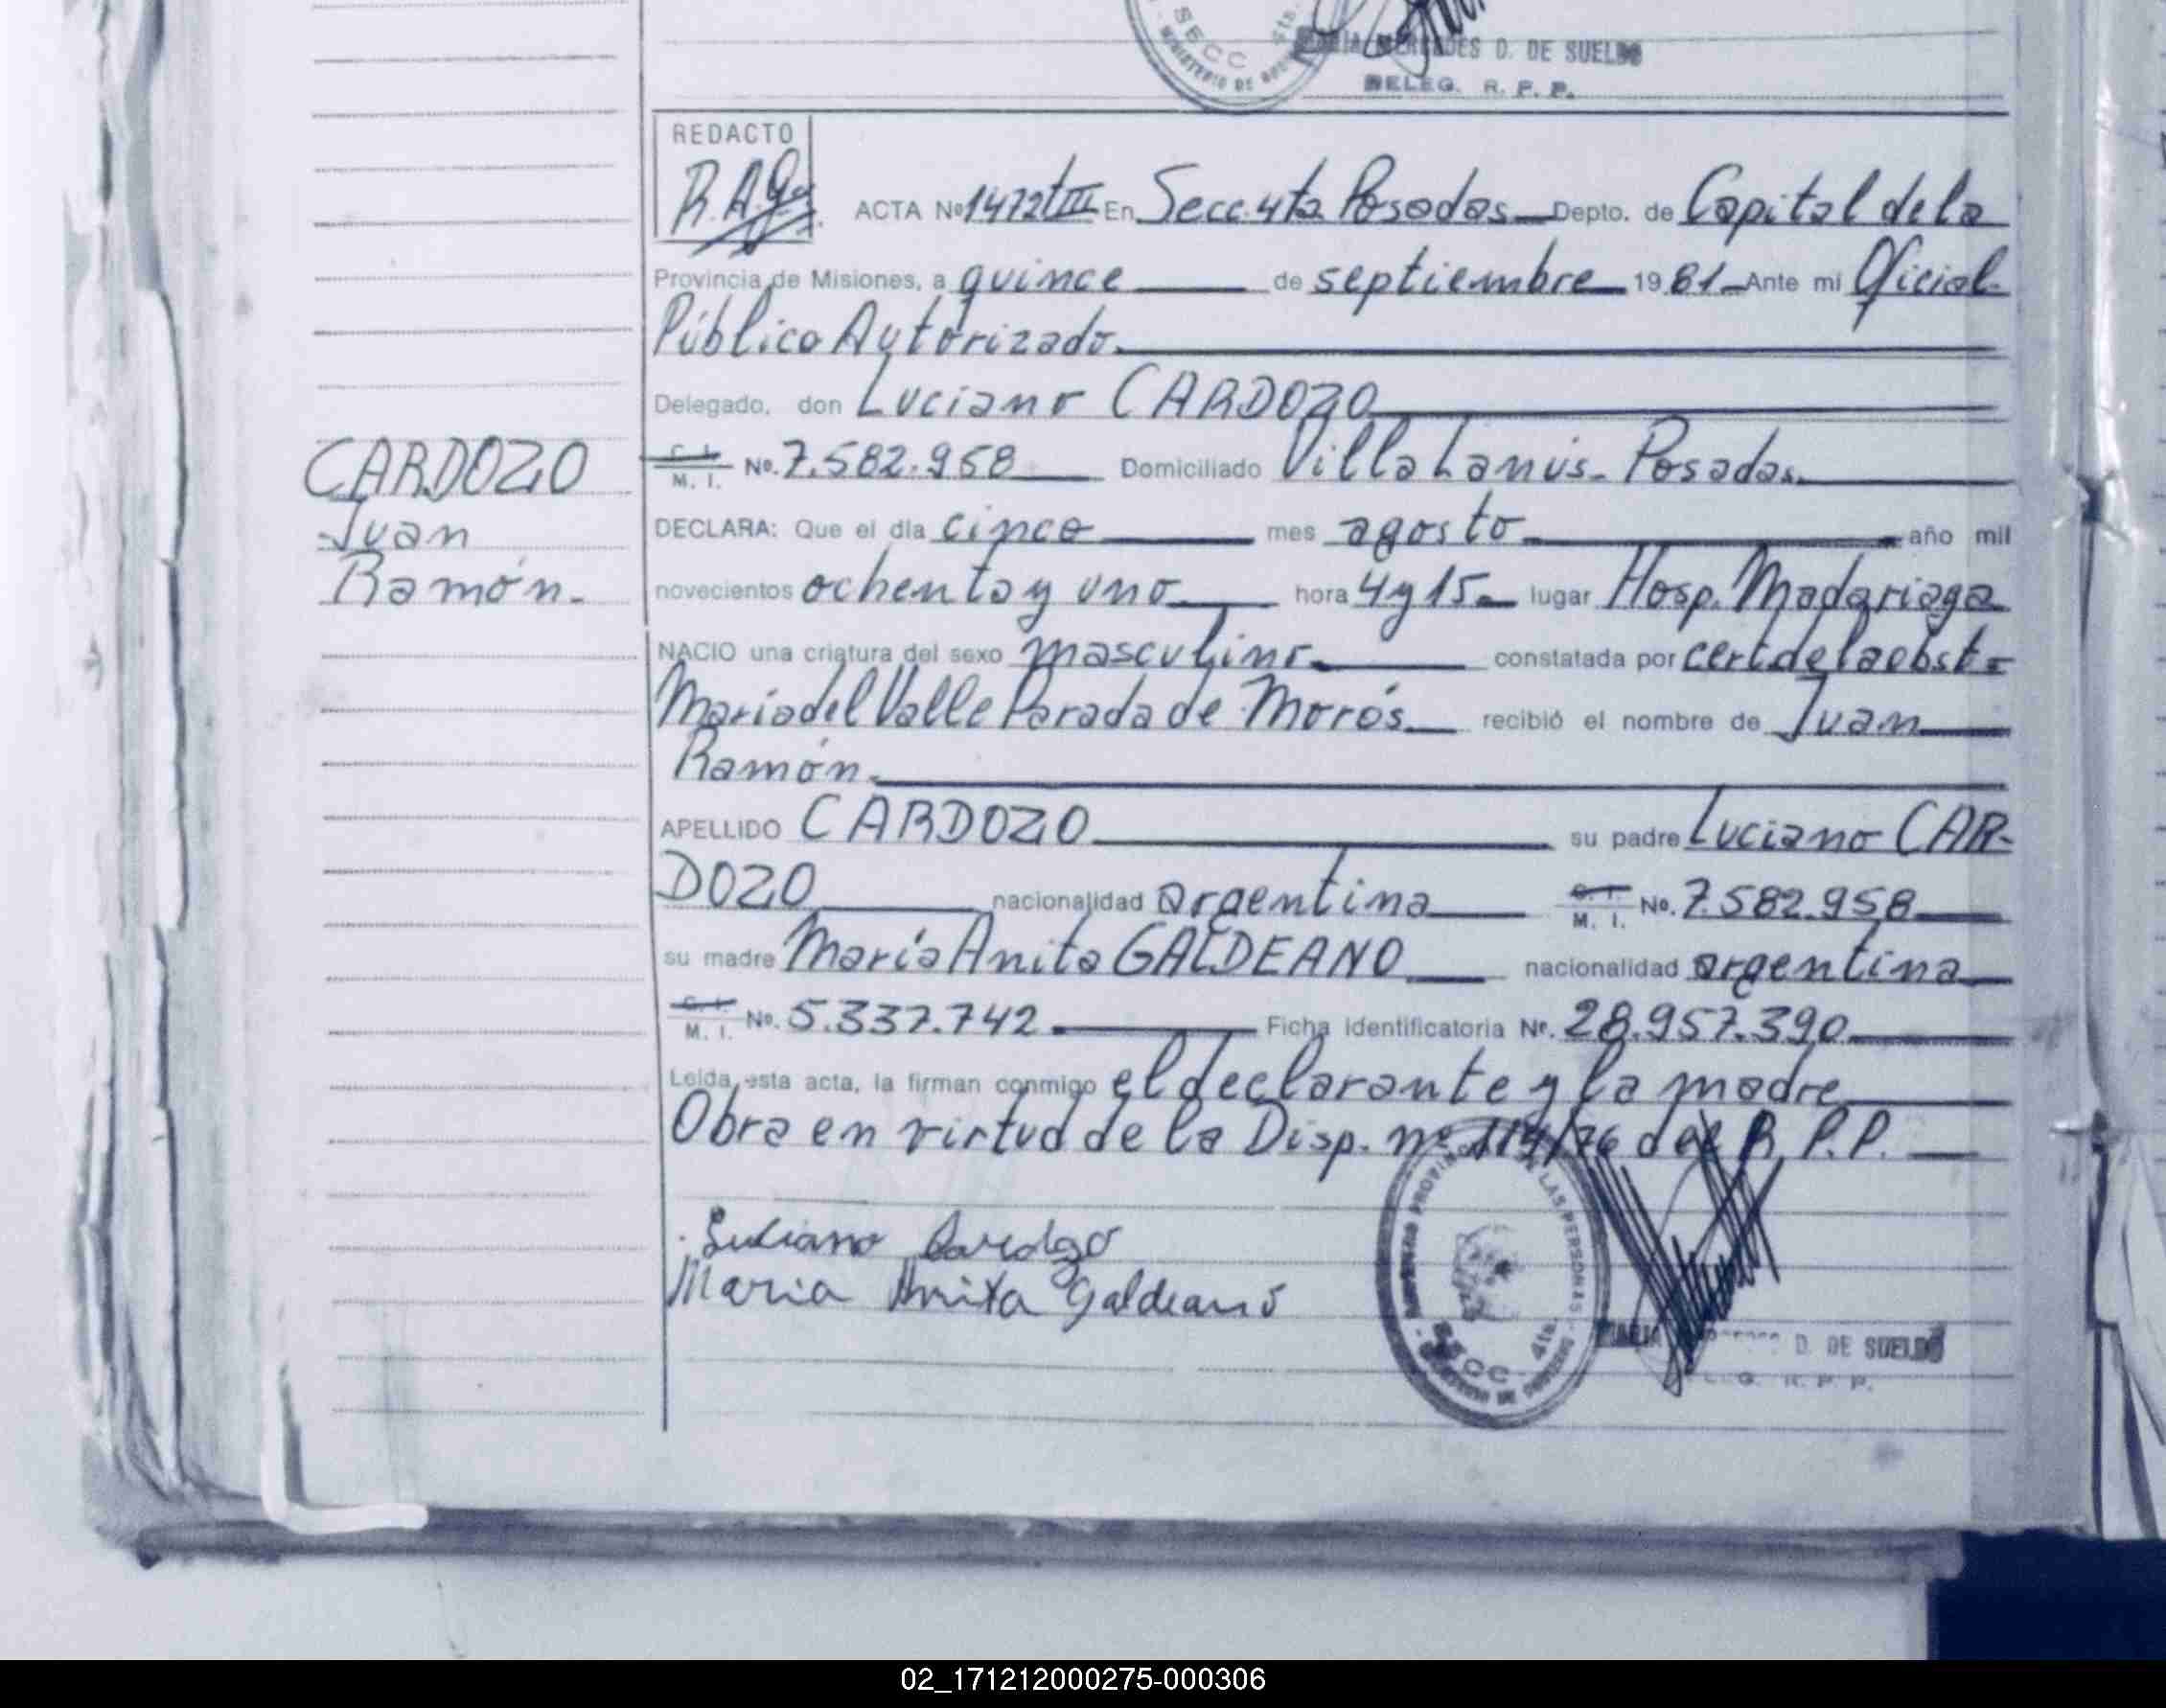 SECC 4ta.
MARIA MERCEDES D. DE SUELDO
DELEG. R. P. P.
REDACTO
R.A.G.
ACTA Nº 1472 tIII En Secc. 4ta Posadas Depto. de Capital de la
Provincia de Misiones, a quince de septiembre 1981 Ante mi Oficial
Público Autorizado.
Delegado, don Luciano CARDOZO
C. I. M. I. No. 7.582.958 Domiciliado Villa Lanús - Posadas.
CARDOZO
Juan
Ramón.-
DECLARA: Que el día cinco mes agosto año mil
novecientos ochenta y uno hora 4 y 15 lugar Hosp. Madariaga
NACIO una criatura del sexo masculino constatada por cert de la obst.
María del Valle Parada de Morós recibió el nombre de Juan
Ramón.
APELLIDO CARDOZO su padre Luciano CAR-
DOZO nacionalidad argentina C. I. M. I. No. 7.582.958
su madre María Anita GALDEANO nacionalidad argentina
C. I. M. I. No. 5.337.742. Ficha Identificatoria Nº. 28.957.390
Leída esta acta, la firman conmigo el declarante y la madre
Obra en virtud de la Disp. nº 114/76 del R. P. P.
Luciano Cardozo
Maria Anita Galdeano
PROVINCIAL DE LAS PERSONAS
SECC 4ta.
MARIA D. DE SUELDO
R. P. P.
02_171212000275-000306